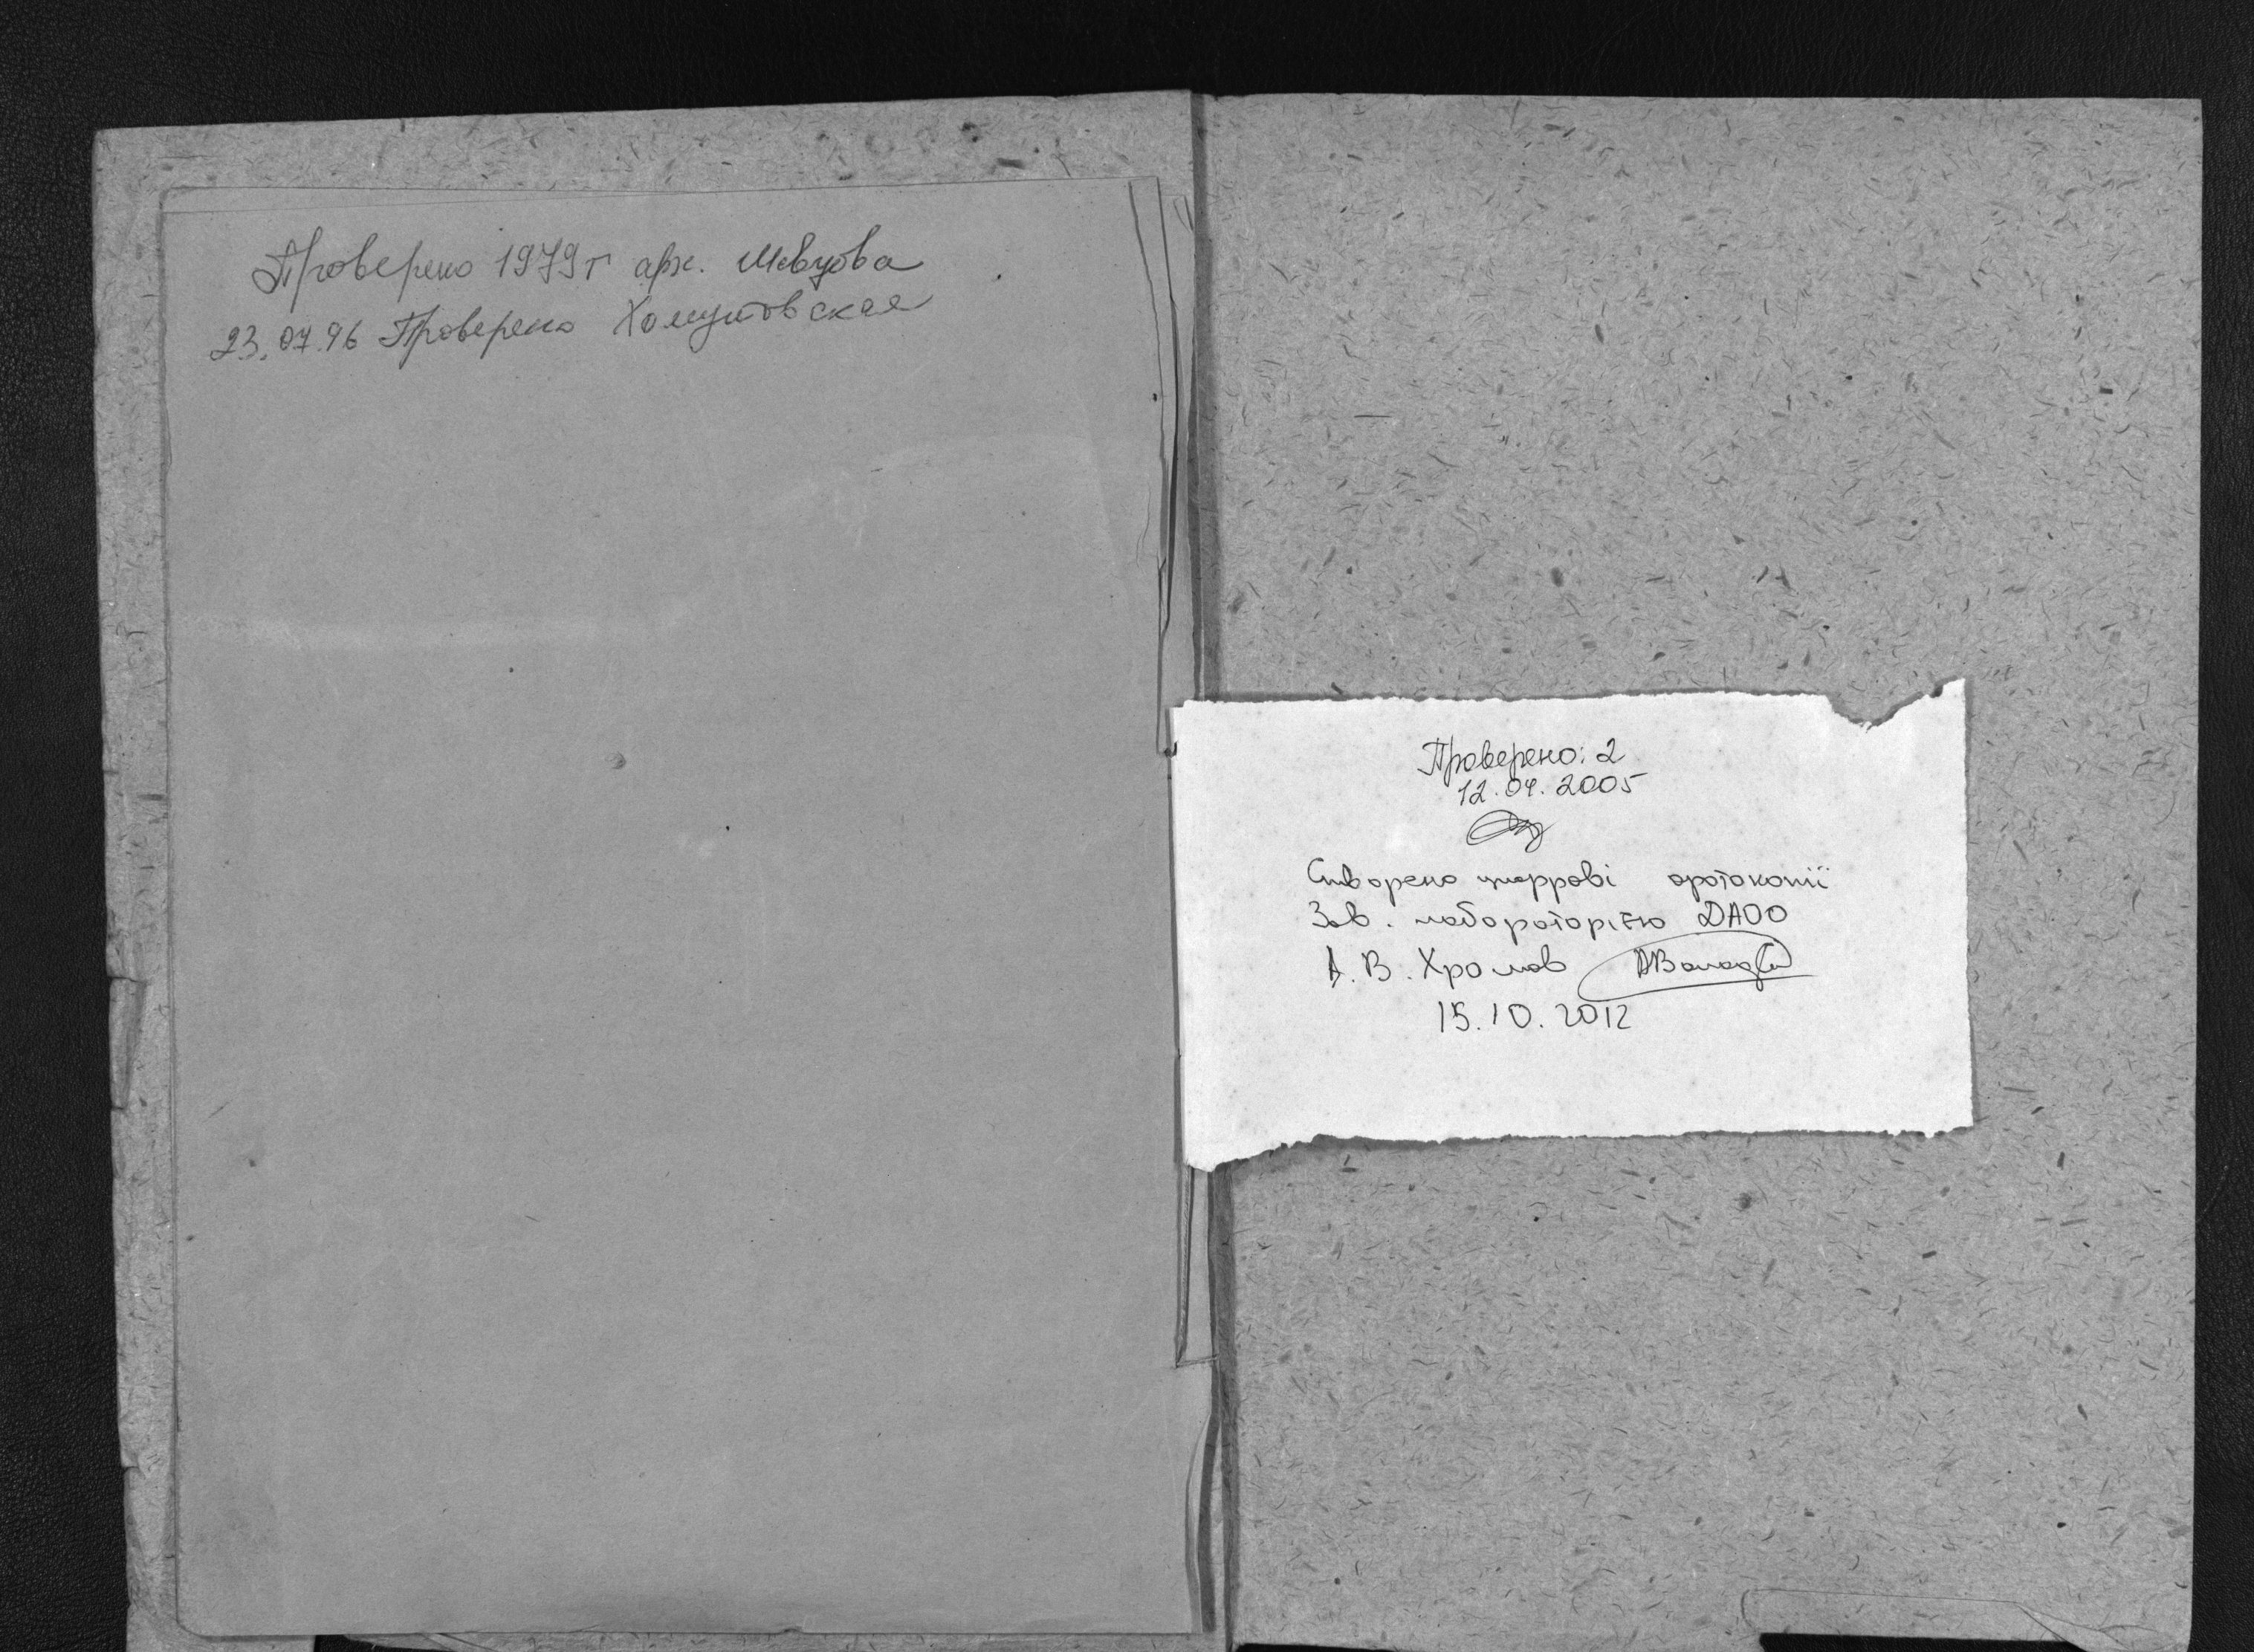 Проверено 1979 г арх. Шевцова
23.07.96 Проверено Хомутовская
Проверено: 2
12.04.2005
Створено цифрові фотокопії
Зав. лабораторією ДАОО
А.В. Хромов
15.10.2012